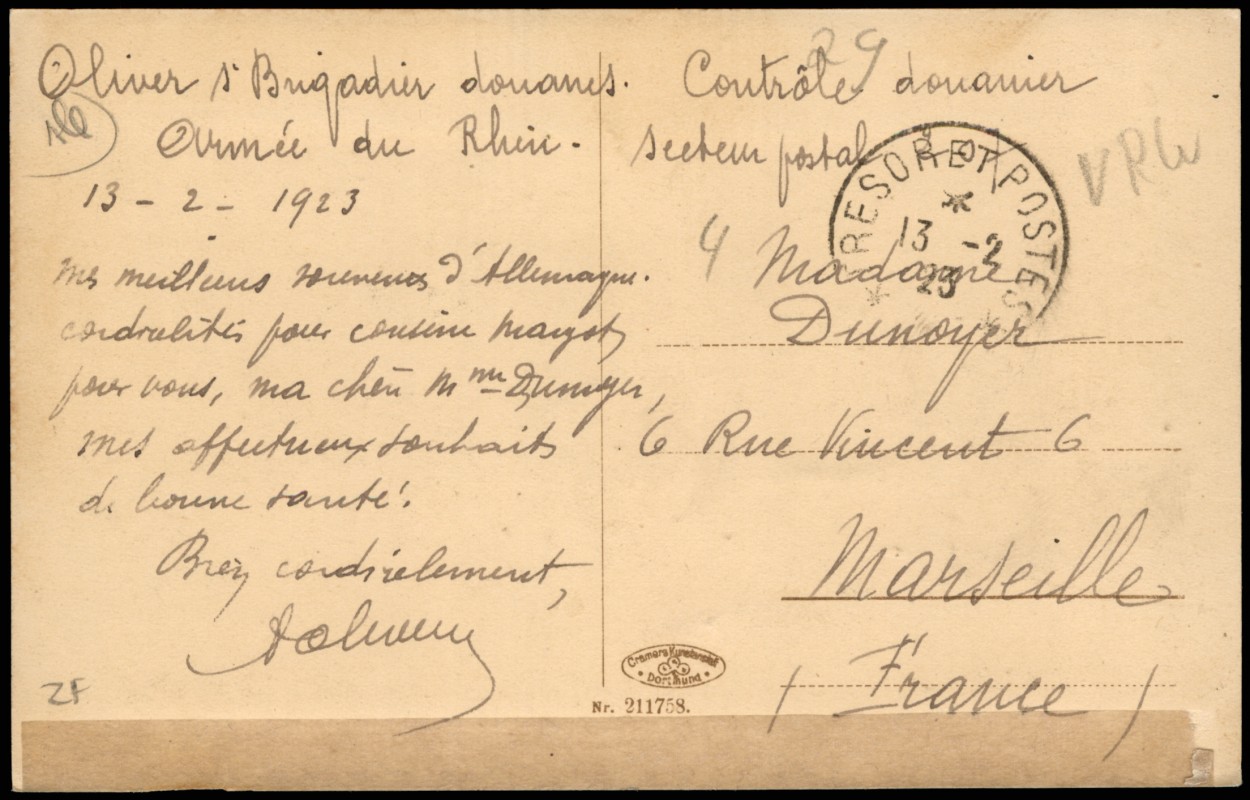 Oliver s/ Brigadier douanes. Contrôle douanier
Armée du Rhin. secteur postal
13 - 2 - 1923
Mes meilleurs souvenirs d'Allemagne.
cordialités pour cousine Margot
pour vous, ma chère Mme Dunoyer,
mes affectueux souhaits
de bonne santé.
Bien cordialement,
29
VRW
TRESOR ET POSTES
13 -2
23
4 Madame
Dunoyer
6 Rue Vincent 6
Marseille
( France )
Cramers Kunstanstalt
Dortmund
Nr. 211758.
ZF